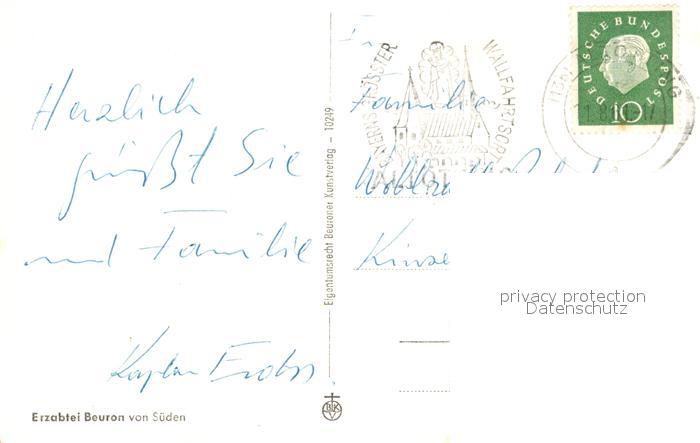 Herzlich
grüßt Sie
und Familie
Kaplan
Erzabtei Beuron von Süden
Eigentumsrecht Beuroner Kunstverlag – 10249
BKV
Familie
BAYERNS GRÖSSTER
WALLFAHRTSORT
DEUTSCHE BUNDESPOST
10
privacy protection
Datenschutz